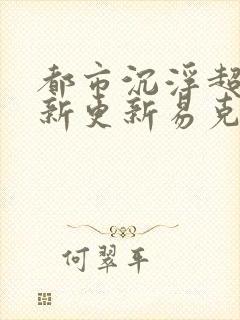 都市沉浮超
新更新易克
何翠平